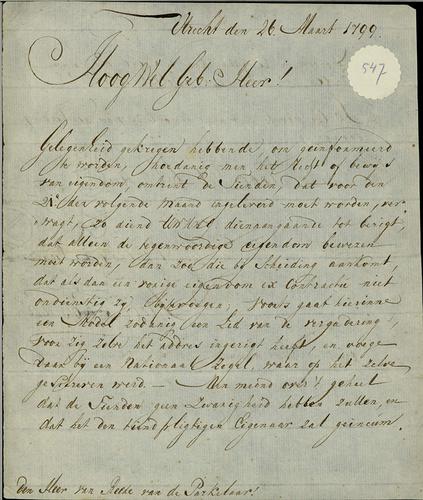 Utrecht den 26. Maart 1799.
547
Hoog Wel Geb: Heer!
Gelegenheid gekregen hebbende, om geinformeerd
te worden, hoedanig men het Recht of bewys
van eigendom, omtrent de Tienden, dat voor den
der volgende Maand ingeleverd moet worden, ver-
langt, zo diend dienaangaande tot berigt,
dat alleen de tegenwoordige eigendom bewezen
moet worden, dan zoo die bij Scheiding aankomt,
dat als dan een vorige eigendom ex Contractu niet
ondienstig zy, bijtevoegen; Voorts gaat hierinne
een Model zodanig een Lid van de vergadering,
voor zig zelve het addres ingerigt heeft, en voege
daar bij een Nationaal Zegel, waar op het zelve
geschreven werd. — Men meend over 't geheel
dat de Tienden geen Zwarigheid hebben zullen, en
dat het den Eigenaar zal
den Heer van Reede van de Parkelaar!